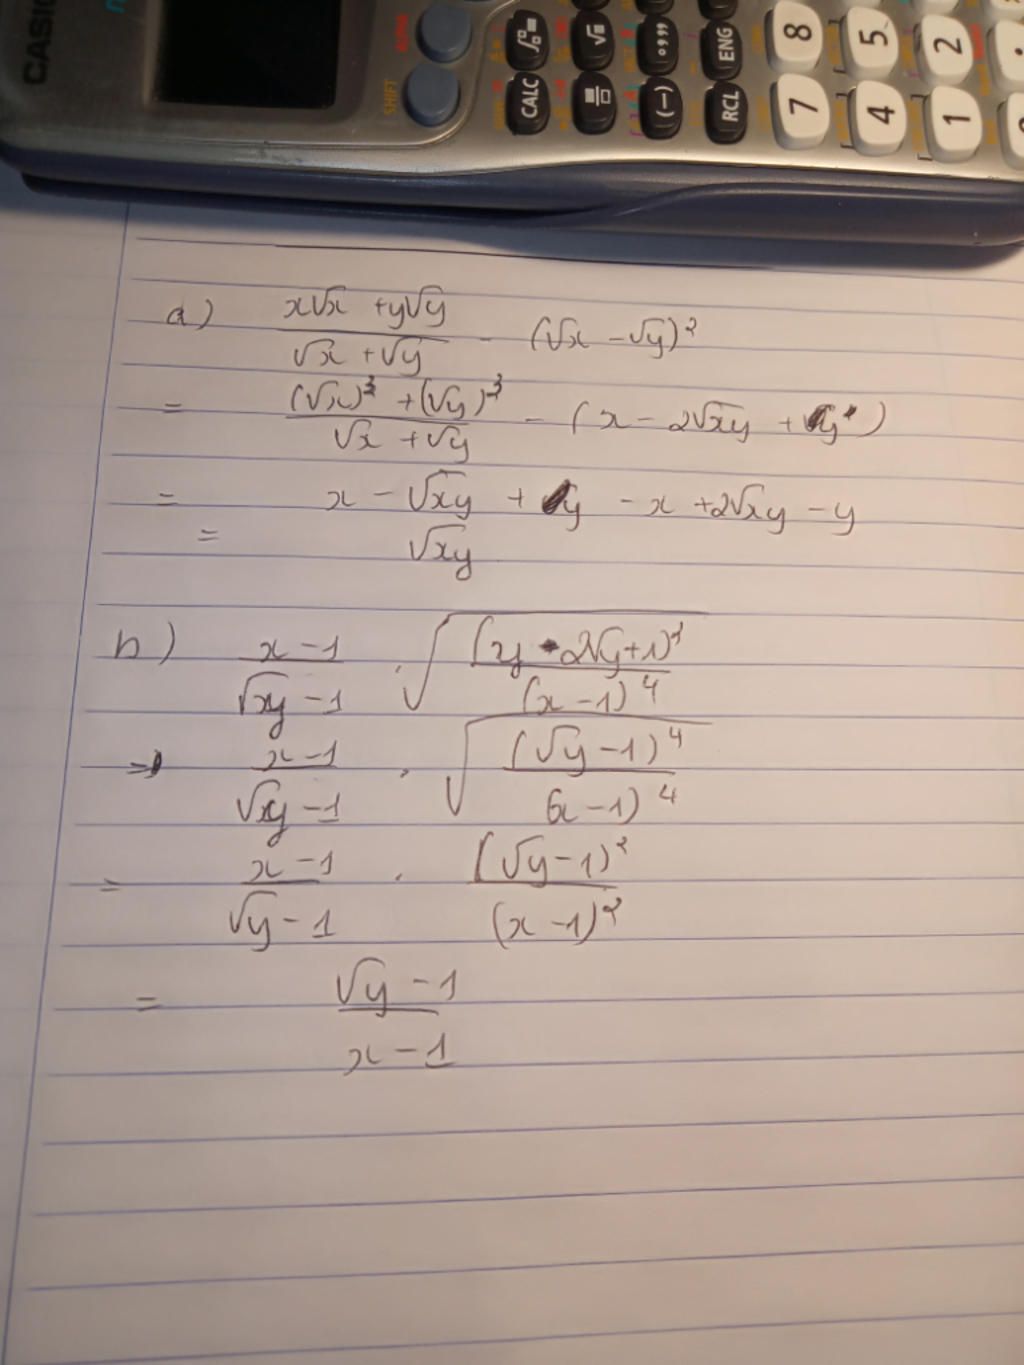 CASIO
ALPHA
SHIFT
CALC
√
(−)
° ' ''
RCL ENG
7 8
4 5
1 2
a) (x√x + y√y)/(√x + √y) - (√x - √y)²
= ((√x)³ + (√y)³)/(√x + √y) - (x - 2√xy + y)
= x - √xy + y - x + 2√xy - y
= √xy
b) (x - 1)/(√xy - 1) . √((y - 2√y + 1)²/(x - 1)⁴)
=> (x - 1)/(√xy - 1) . √((√y - 1)⁴/(x - 1)⁴)
= (x - 1)/(√y - 1) . (√y - 1)²/(x - 1)²
= (√y - 1)/(x - 1)